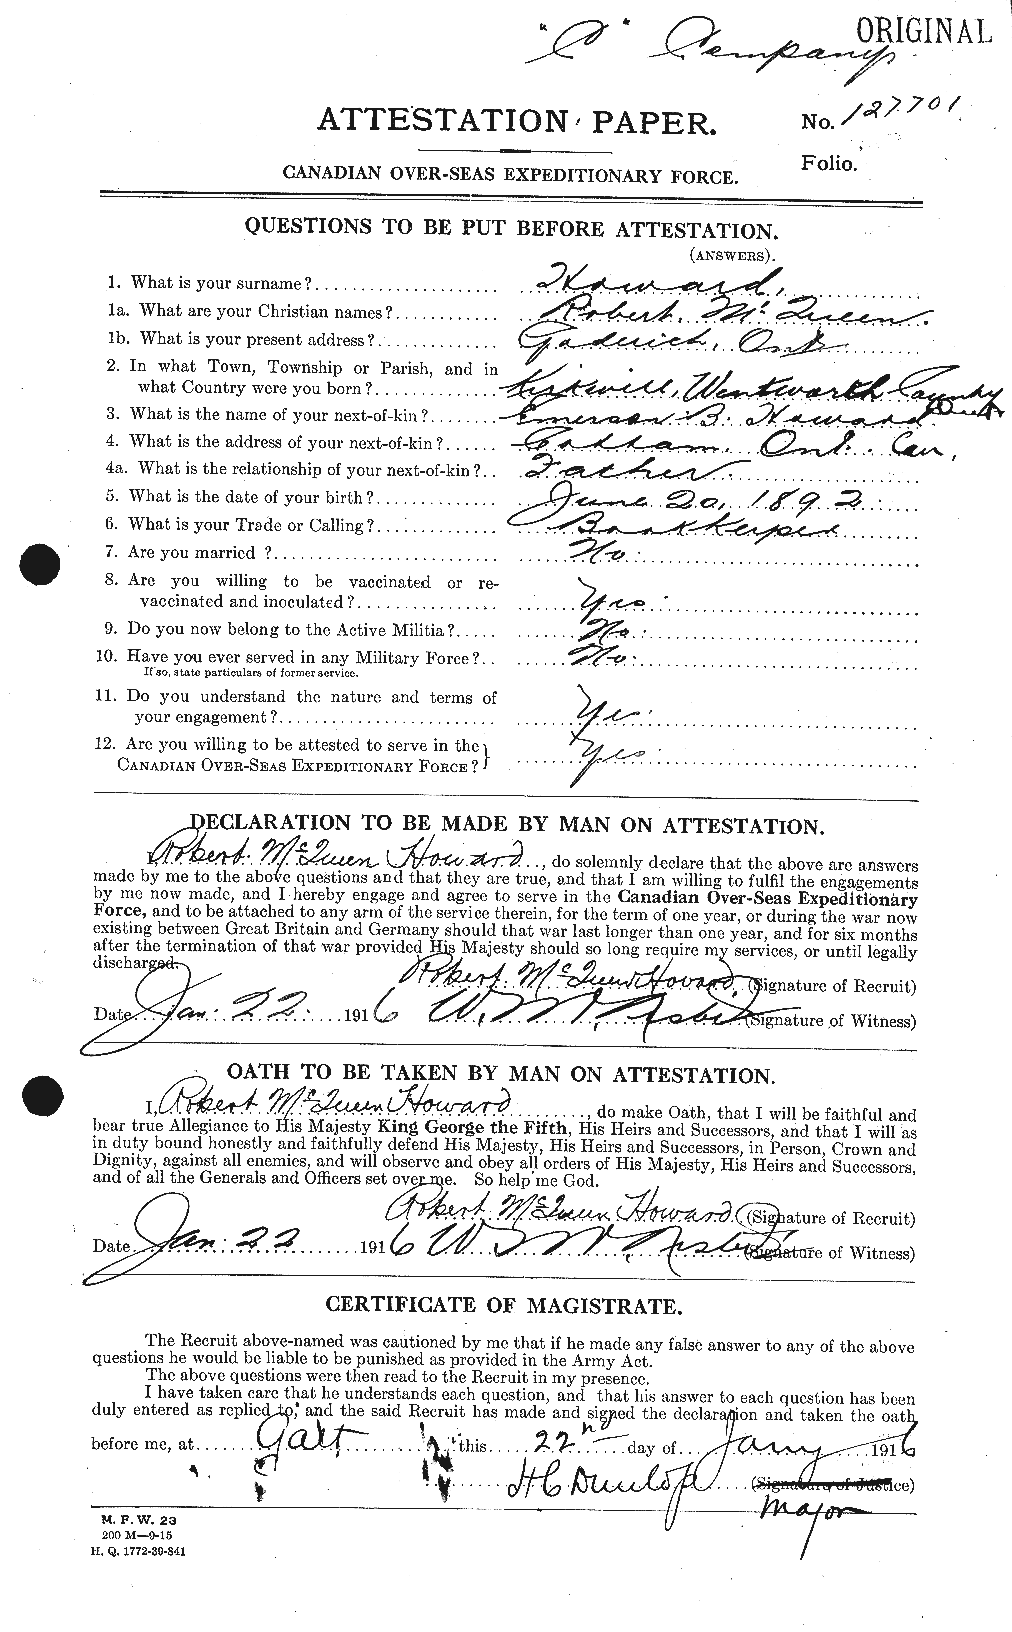 "C" Company
ORIGINAL
ATTESTATION PAPER.
No. 127701
Folio.
CANADIAN OVER-SEAS EXPEDITIONARY FORCE.
QUESTIONS TO BE PUT BEFORE ATTESTATION.
(ANSWERS).
1. What is your surname? Howard,
1a. What are your Christian names? Robert Mc Queen.
1b. What is your present address? Goderich, Ont.
2. In what Town, Township or Parish, and in
what Country were you born? Kirkwill, Wentworth County
Ont
3. What is the name of your next-of-kin? Emerson B. Howard
4. What is the address of your next-of-kin? Ont. Can.
4a. What is the relationship of your next-of-kin? Father.
5. What is the date of your birth? June 20, 1892
6. What is your Trade or Calling? Bookkeeper
7. Are you married? No.
8. Are you willing to be vaccinated or re-
vaccinated and inoculated? Yes.
9. Do you now belong to the Active Militia? No.
10. Have you ever served in any Military Force? No.
If so, state particulars of former service.
11. Do you understand the nature and terms of
your engagement? Yes.
12. Are you willing to be attested to serve in the
CANADIAN OVER-SEAS EXPEDITIONARY FORCE? Yes
DECLARATION TO BE MADE BY MAN ON ATTESTATION.
Robert McQueen Howard, do solemnly declare that the above are answers
made by me to the above questions and that they are true, and that I am willing to fulfil the engagements
by me now made, and I hereby engage and agree to serve in the Canadian Over-Seas Expeditionary
Force, and to be attached to any arm of the service therein, for the term of one year, or during the war now
existing between Great Britain and Germany should that war last longer than one year, and for six months
after the termination of that war provided His Majesty should so long require my services, or until legally
discharged.
Robert McQueen Howard. (Signature of Recruit)
Date Jan. 22. 1916 (Signature of Witness)
OATH TO BE TAKEN BY MAN ON ATTESTATION.
I, Robert McQueen Howard, do make Oath, that I will be faithful and
bear true Allegiance to His Majesty King George the Fifth, His Heirs and Successors, and that I will as
in duty bound honestly and faithfully defend His Majesty, His Heirs and Successors, in Person, Crown and
Dignity, against all enemies, and will observe and obey all orders of His Majesty, His Heirs and Successors,
and of all the Generals and Officers set over me. So help me God.
Robert McQueen Howard (Signature of Recruit)
Date Jan. 22 1916 (Signature of Witness)
CERTIFICATE OF MAGISTRATE.
The Recruit above-named was cautioned by me that if he made any false answer to any of the above
questions he would be liable to be punished as provided in the Army Act.
The above questions were then read to the Recruit in my presence.
I have taken care that he understands each question, and that his answer to each question has been
duly entered as replied to, and the said Recruit has made and signed the declaration and taken the oath
before me, at Galt this 22nd day of Jany 1916
H C Dunlop (Signature of Justice)
Major
M. F. W. 23
200 M—9-15
H. Q. 1772-39-841